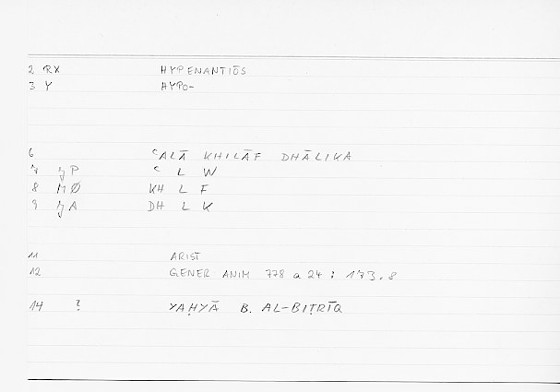 2 RX HYPENANTIŌS
3 Y HYPO-
6 ʿALĀ KHILĀF DHĀLIKA
7 zP ʿ L W
8 MØ KH L F
9 zA DH L K
11 ARIST
12 GENER ANIM 778 a 24 : 173.8
14 ? YAḤYĀ B. AL-BIṬRĪQ